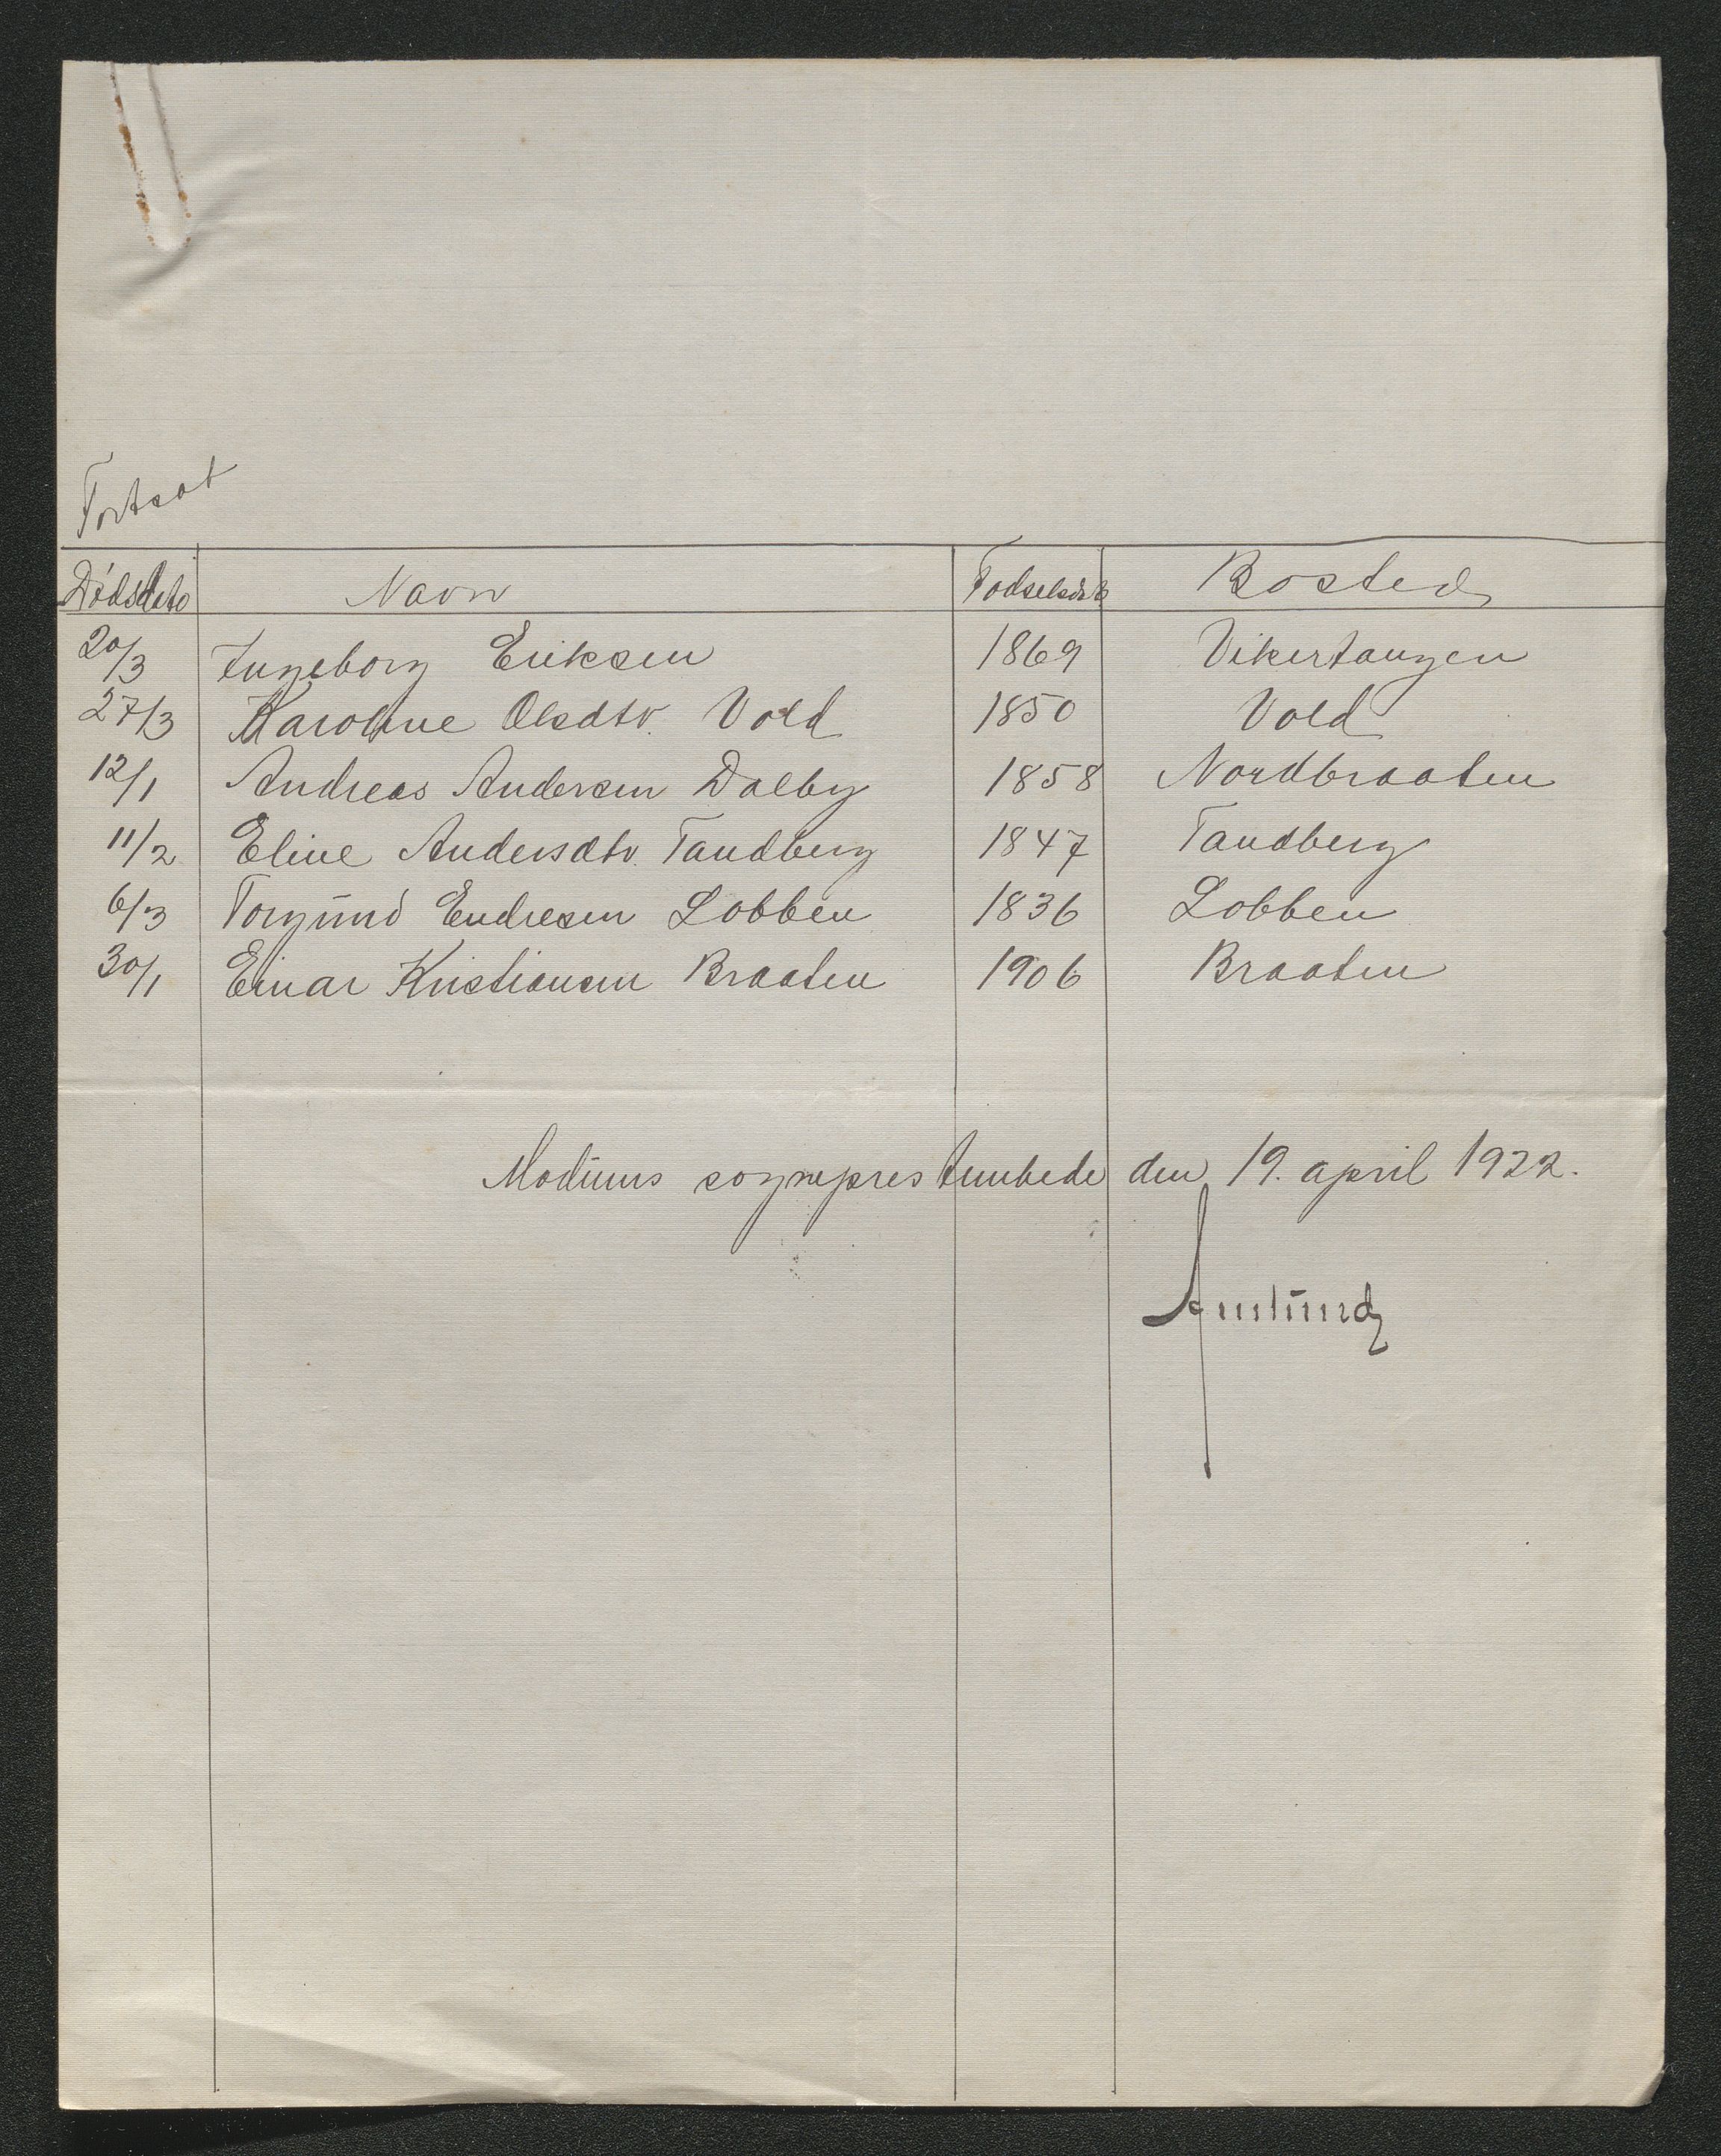 Fortsat
Dødsdato Navn Fødselsår Bosted
20/3 Ingeborg Eriksen 1869 Vikertangen
27/3 Karoline Olsdtr. Vold 1850 Vold
12/1 Andreas Andersen Dalby 1858 Nordbraaten
11/2 Eline Andersdtr. Tandberg 1847 Tandberg
6/3 Torgund Endresen Lobben 1836 Lobben
30/1 Einar Kristiansen Braaten 1906 Braaten
Modums sogneprestembede den 19. april 1922.
Amlund